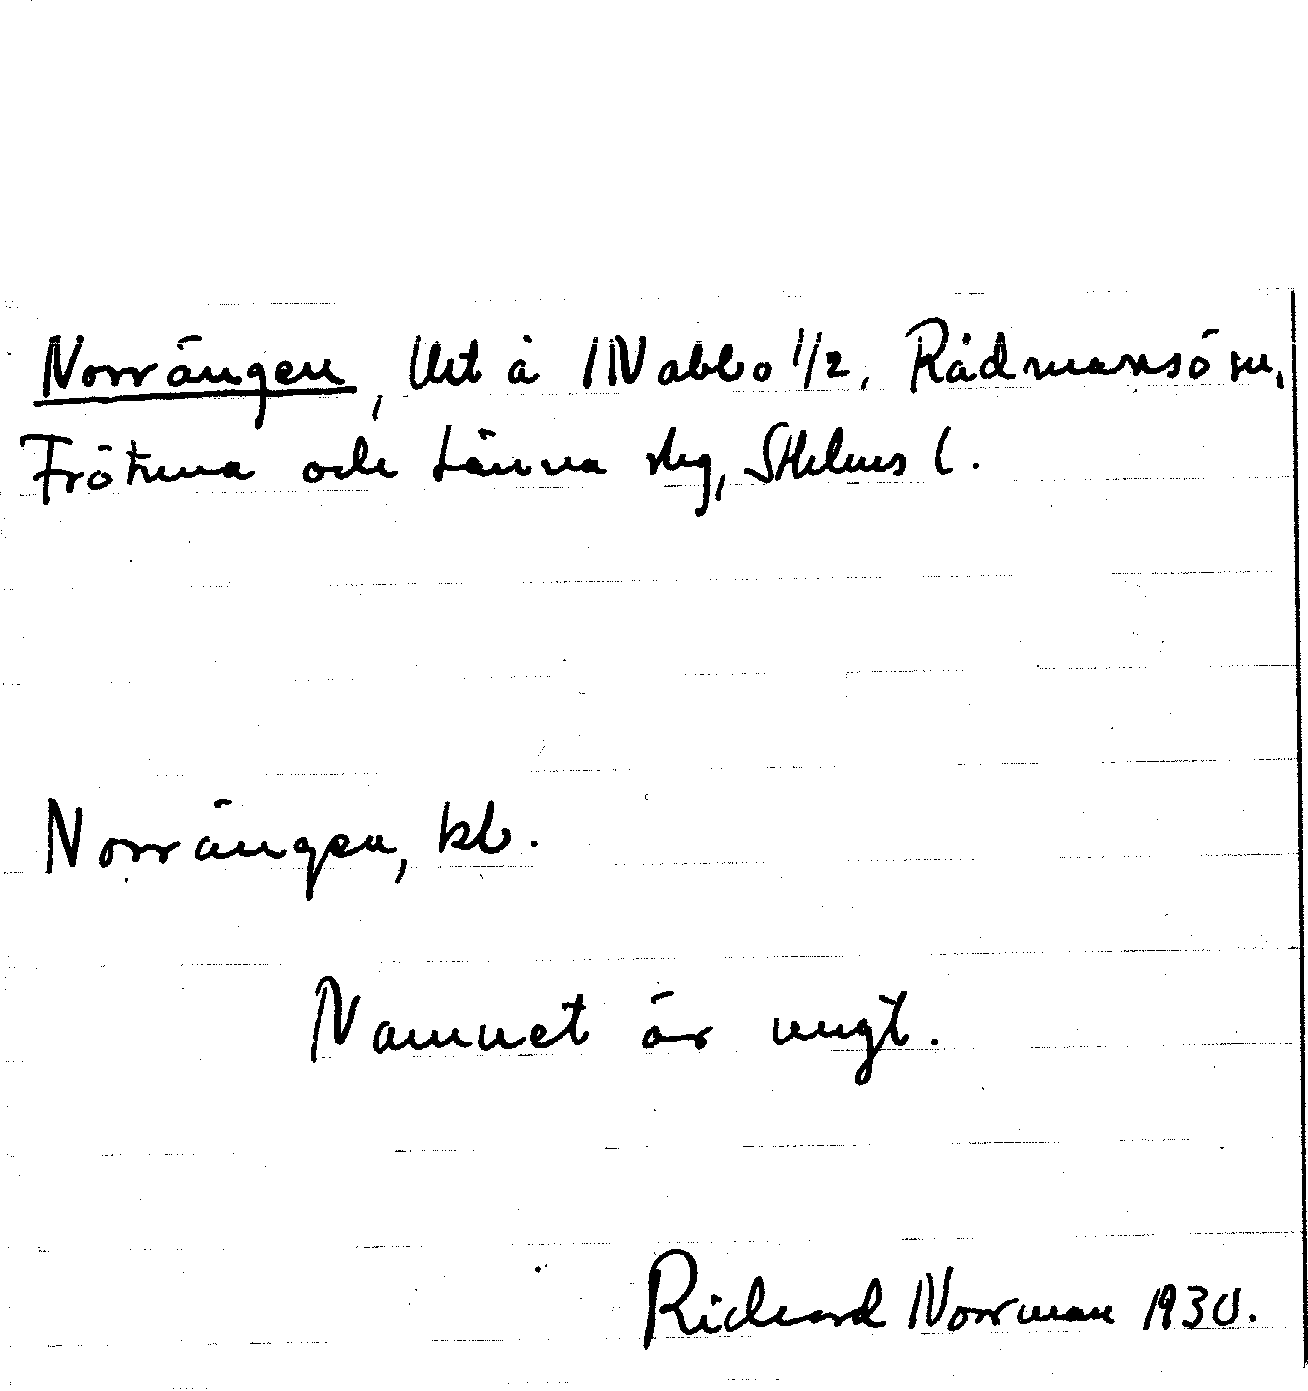 Norrängen, lht å 1 Nabbo 1/2, Rådmansö sn,
Frötuna och Länna skg, Sthlms l.
Norrängen, kl.
Namnet är ungt.
Richard Norrman 1930.